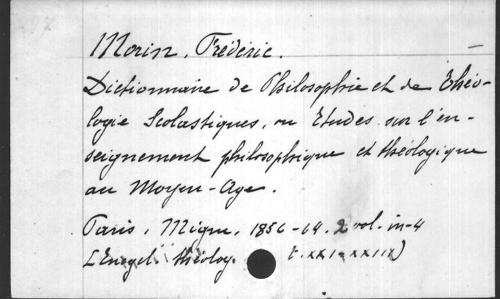 Morin, Frédéric.
Dictionnaire de Philosophie et de Théo-
logie Scolastiques, ou Etudes sur l'en-
seignement philosophique et théologique
au Moyen-Age.
Paris, Migne, 1856-64. 2 vol. in-4
théolog. t. XXI-XXII)